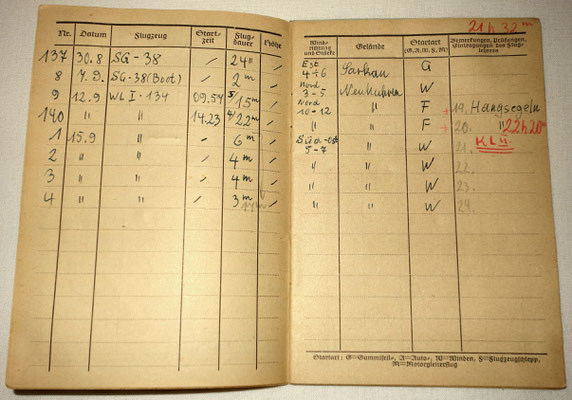 Nr. Datum Flugzeug Startzeit Flugdauer Höhe
137 30.8 SG-38 / 24" /
8 7.9. SG-38 (Boot) / 2m /
9 12.9 WL I-134 09.57 5/15m /
140 " " 14.23 4/22m /
1 15.9 " / 6m /
2 " " / 4m /
3 " " / 4m /
4 " " / 3m /
21h 32m
Windrichtung und Stärke Gelände Startart (G.A.W.F.M.) Bemerkungen, Prüfungen, Eintragungen des Fluglehrers
Est 4÷6 Sarkau G
Nord 3-5 Neukuhren W
Nord 10-12 " F 19. Hangsegeln
" F 20. " 22h20m
Süd-est 5-7 " W 21. KL II.
" " W 22.
" " W 23.
" " W 24.
Startart: G=Gummiseil-, A=Auto-, W=Winden-, F=Flugzeugschlepp,
M=Motorgleiterflug